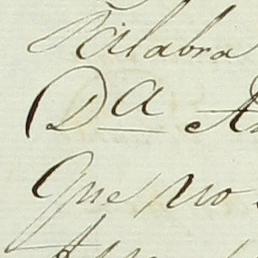 Palabra
Da A
Que no